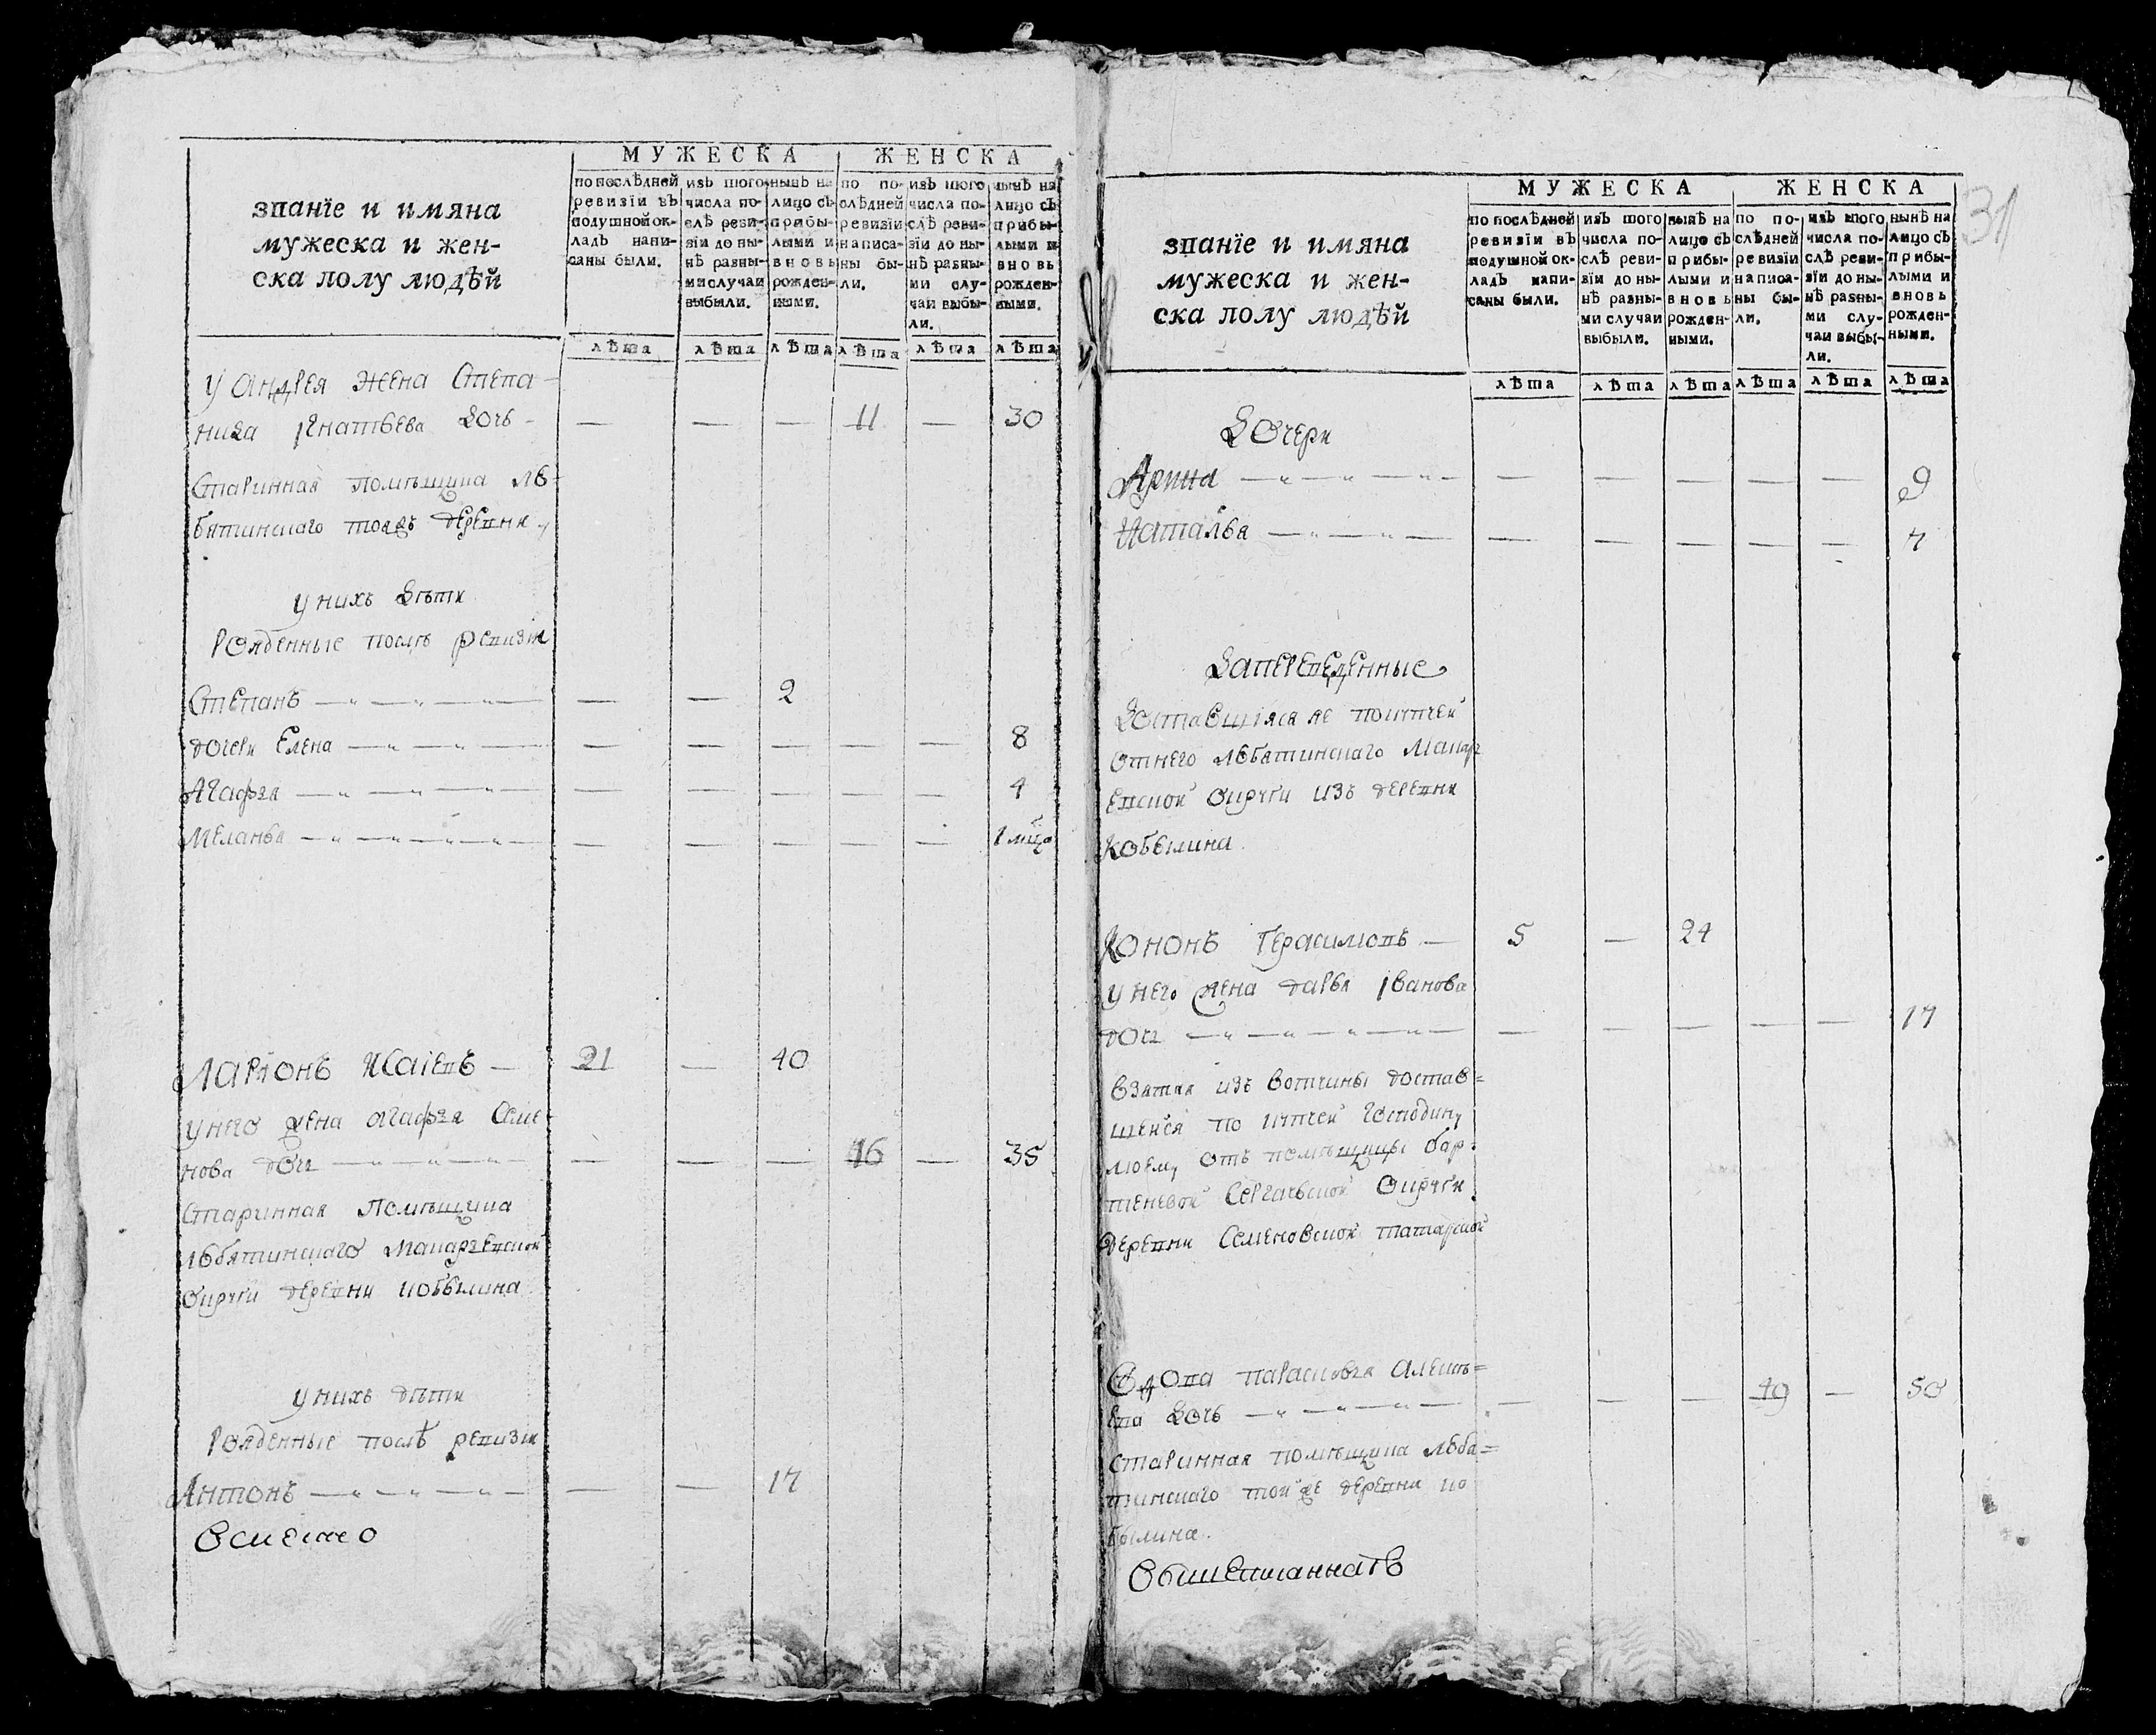 МУЖЕСКА ЖЕНСКА
званїе и имяна
мужеска и жен-
ска полу людѣй
по послѣдней
ревизїи въ
подушной ок-
ладъ напи-
саны были.
изъ того
числа по-
слѣ реви-
зїи до ны-
нѣ разны-
ми случаи
выбыли.
нынѣ на
лицо съ
прибы-
лыми и
вновь
рожден-
ными.
по по-
слѣдней
ревизїи
написа-
ны бы-
ли.
изъ того
числа по-
слѣ реви-
зїи до ны-
нѣ разны-
ми слу-
чаи выбы-
ли.
нынѣ на
лицо съ
прибы-
лыми и
вновь
рожден-
ными.
лѣта лѣта лѣта лѣта лѣта лѣта
у Андрея жена Степа-
нида Игнатьева дочь — — — 11 — 30
Старинная помѣщика Лю-
бятинскаго тояжъ деревни
у нихъ дѣти
Рожденные послѣ ревизіи
Степанъ — — 2
дочери Елена — — — — — 8
Агафья — — — — — 4
Меланья — — — — — 1 мцъ
Ларіонъ Исаіевъ — 21 — 40
у него жена Агафья Семе-
нова дочь — — — 16 — 35
Старинная Помѣщика
Любятинскаго Макарьевской
округи деревни кобылина
у нихъ дѣти
Рожденные послѣ ревизіи
Антонъ — — 17
МУЖЕСКА ЖЕНСКА
31
званїе и имяна
мужеска и жен-
ска полу людѣй
по послѣдней
ревизїи въ
подушной ок-
ладъ напи-
саны были.
изъ того
числа по-
слѣ реви-
зїи до ны-
нѣ разны-
ми случаи
выбыли.
нынѣ на
лицо съ
прибы-
лыми и
вновь
рожден-
ными.
по по-
слѣдней
ревизїи
написа-
ны бы-
ли.
изъ того
числа по-
слѣ реви-
зїи до ны-
нѣ разны-
ми слу-
чаи выбы-
ли.
нынѣ на
лицо съ
прибы-
лыми и
вновь
рожден-
ными.
лѣта лѣта лѣта лѣта лѣта лѣта
Дочери
Арина — — — — — 9
Наталья — — — — — 4
Запереведенные
Доставшіяся же покупкеи
от него Любятинскаго Макарь
евской округи изъ деревни
Кобылина.
Кононъ Герасимовъ — 5 — 24
у него жена дарья Іванова
дочь — — — — — 17
взятая изъ вотчины достав=
шеися по купчеи Господину
моему отъ помѣщицы бар=
теневой Сергачьской Округи
деревни Семеновской татарской
Вдова парасковья Алексѣ=
ева дочь — — — 49 — 50
старинная помѣщика Любя=
тинскаго той же деревни ко
былина.